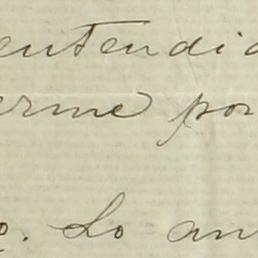 entendid
erme por
o. Lo an